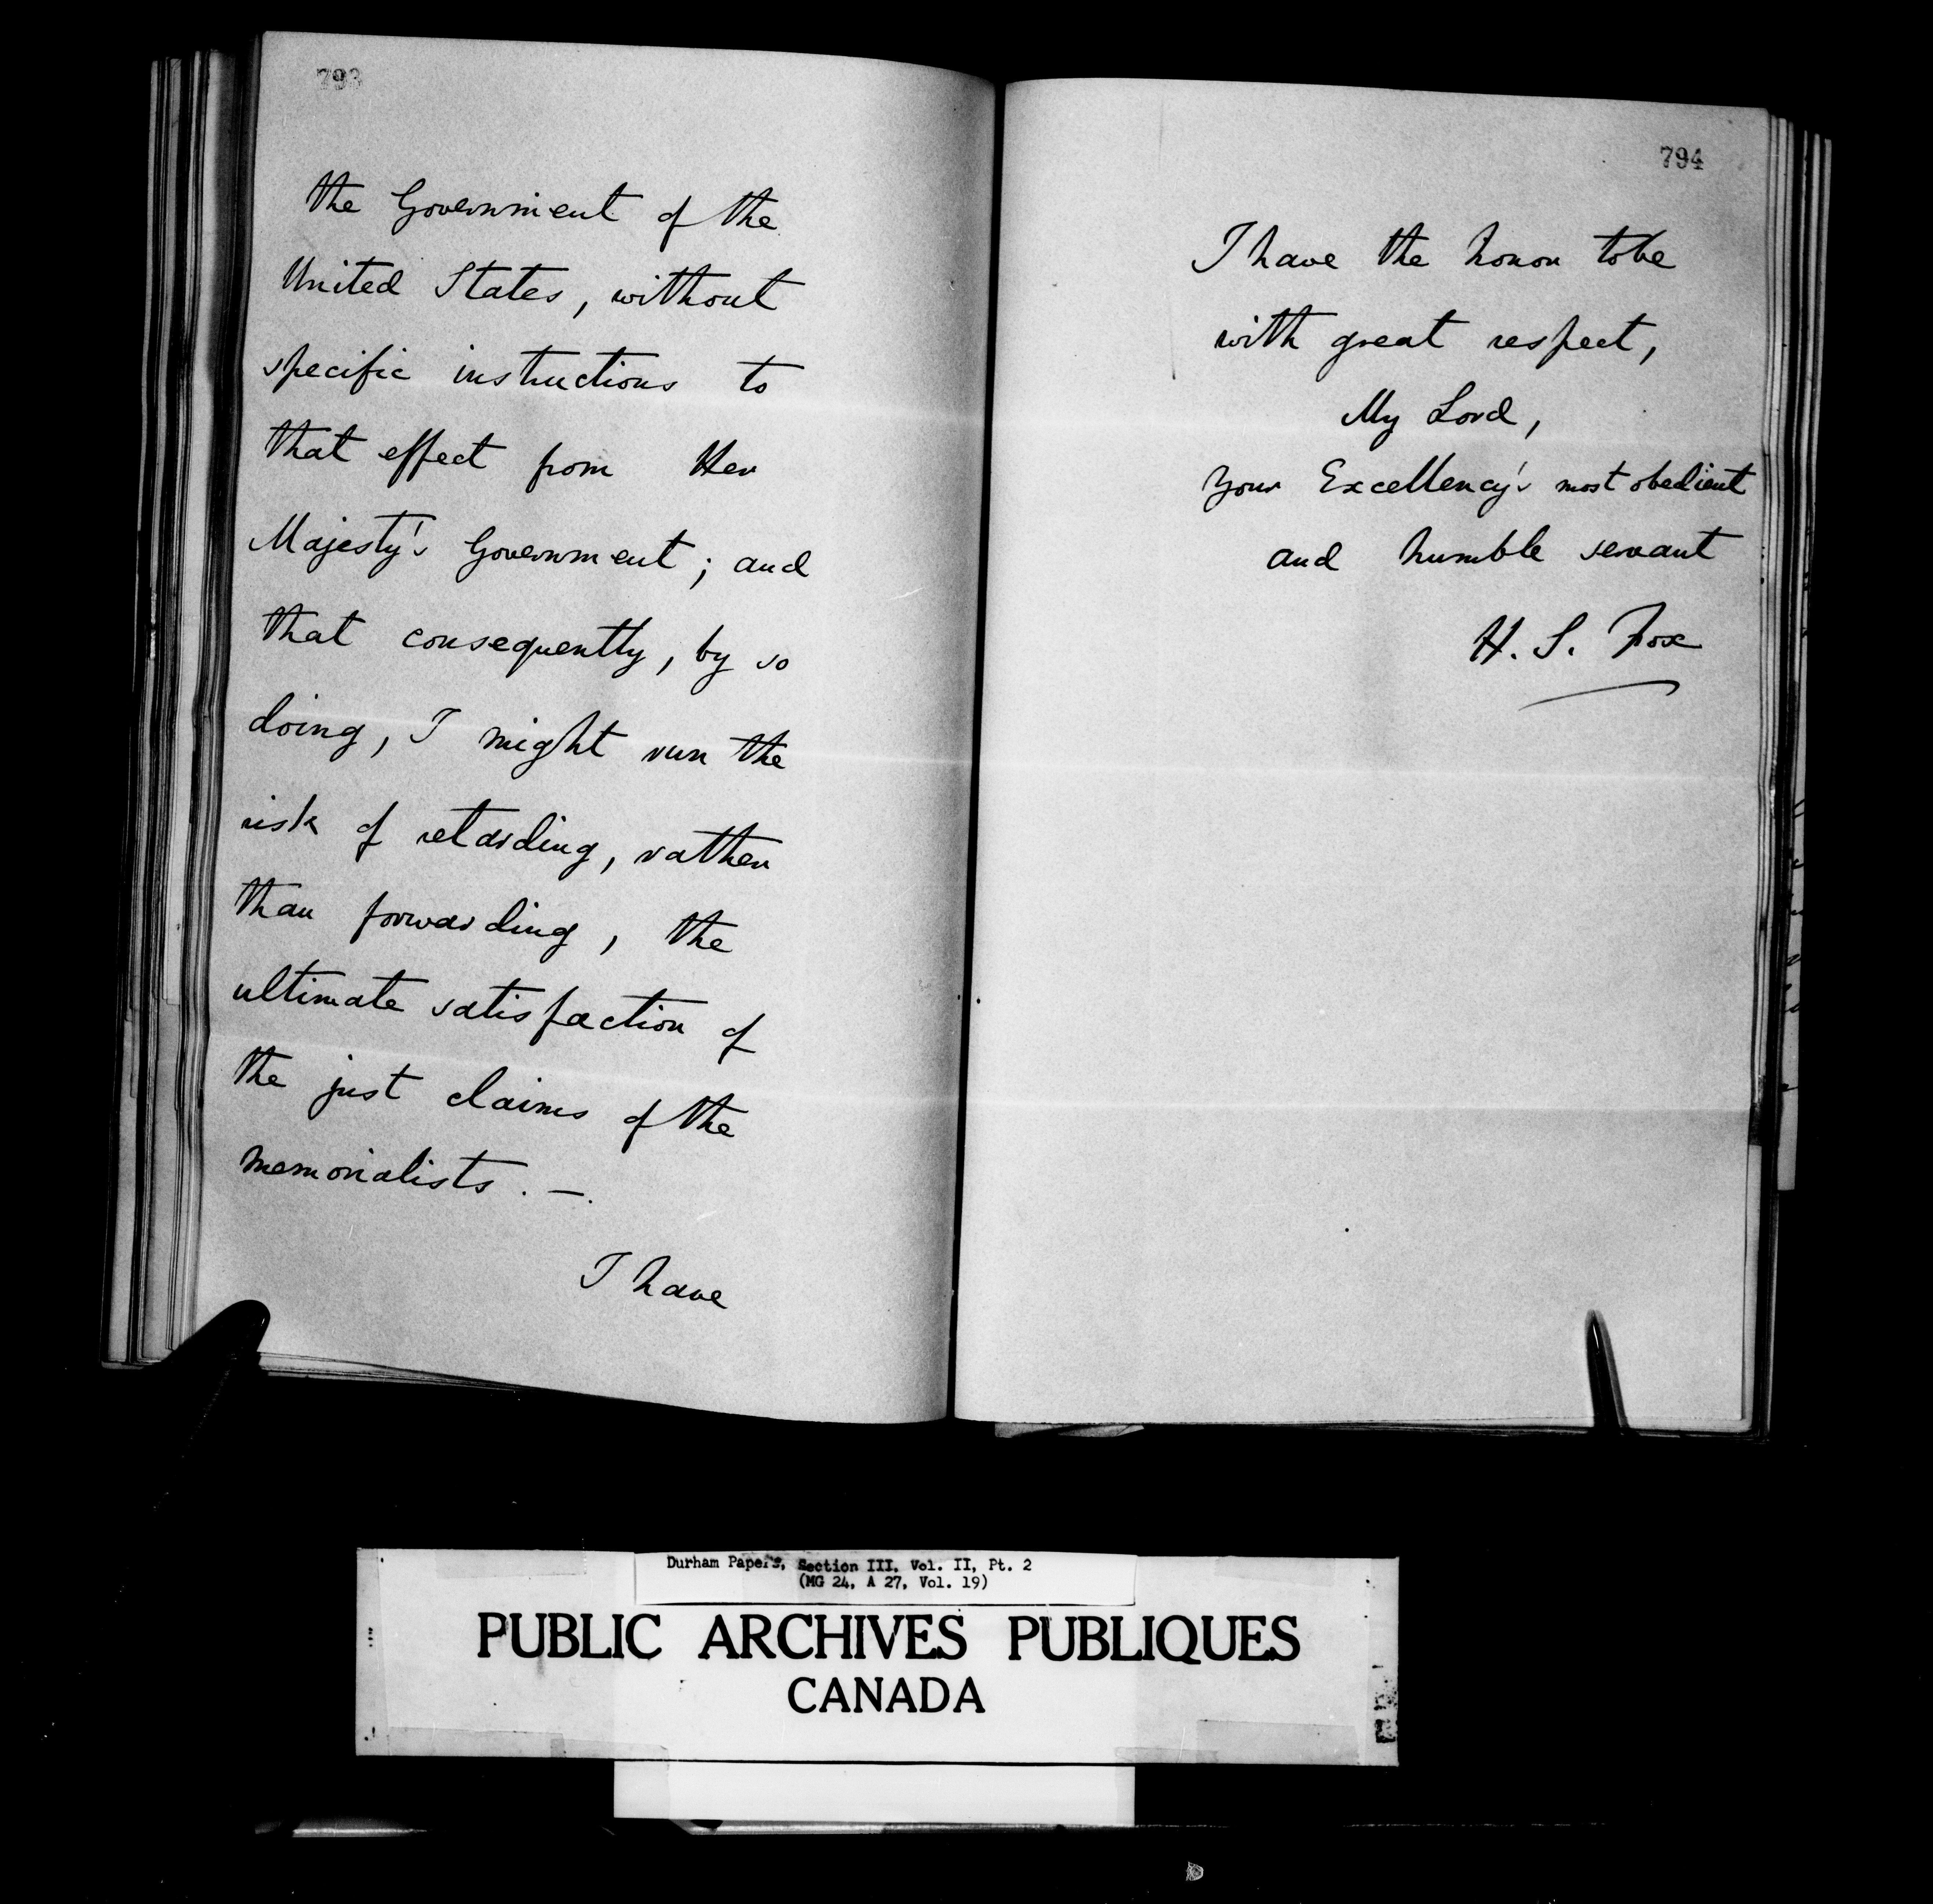 793
the Government of the
United States, without
specific instructions to
that effect from Her
Majesty's Government; and
that consequently, by so
doing, I might run the
risk of retarding, rather
than forwarding, the
ultimate satisfaction of
the just claims of the
memorialists. —.
I have
794
I have the honor to be
with great respect,
My Lord,
Your Excellency's most obedient
and humble servant
H. S. Fox
Durham Papers, Section III, Vol. II, Pt. 2
(MG 24, A 27, Vol. 19)
PUBLIC ARCHIVES PUBLIQUES
CANADA